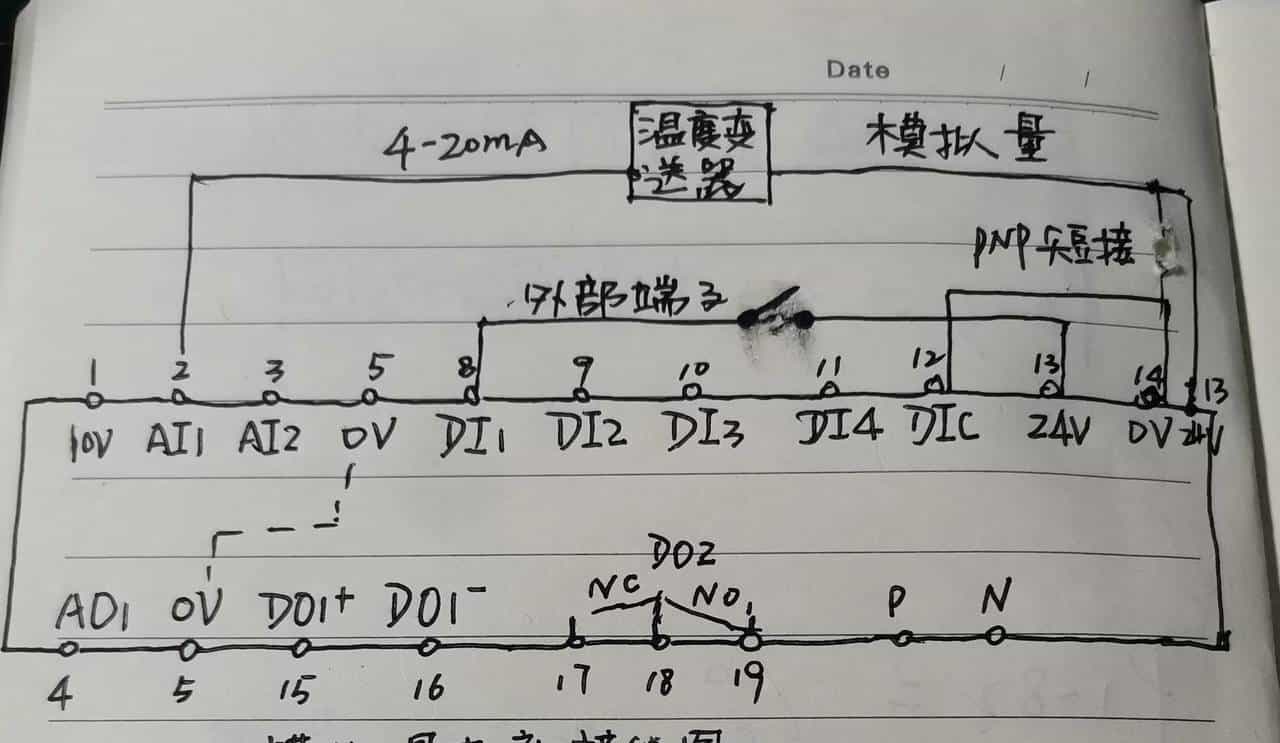 Date / /
4-20mA 温度变 模拟量
送器
PNP短接
外部端子
1 2 3 5 8 9 10 11 12 13 14 13
10V AI1 AI2 0V DI1 DI2 DI3 DI4 DIC 24V 0V 24V
DO2
NC NO
AO1 0V DO1+ DO1- P N
4 5 15 16 17 18 19